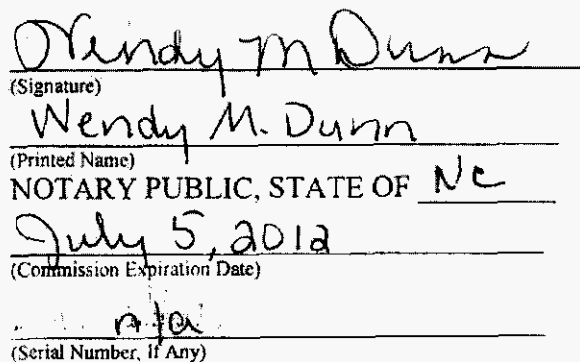 Wendy M Dunn
(Signature)
Wendy M. Dunn
(Printed Name)
NOTARY PUBLIC, STATE OF NC
July 5, 2012
(Commission Expiration Date)
n/a
(Serial Number, If Any)